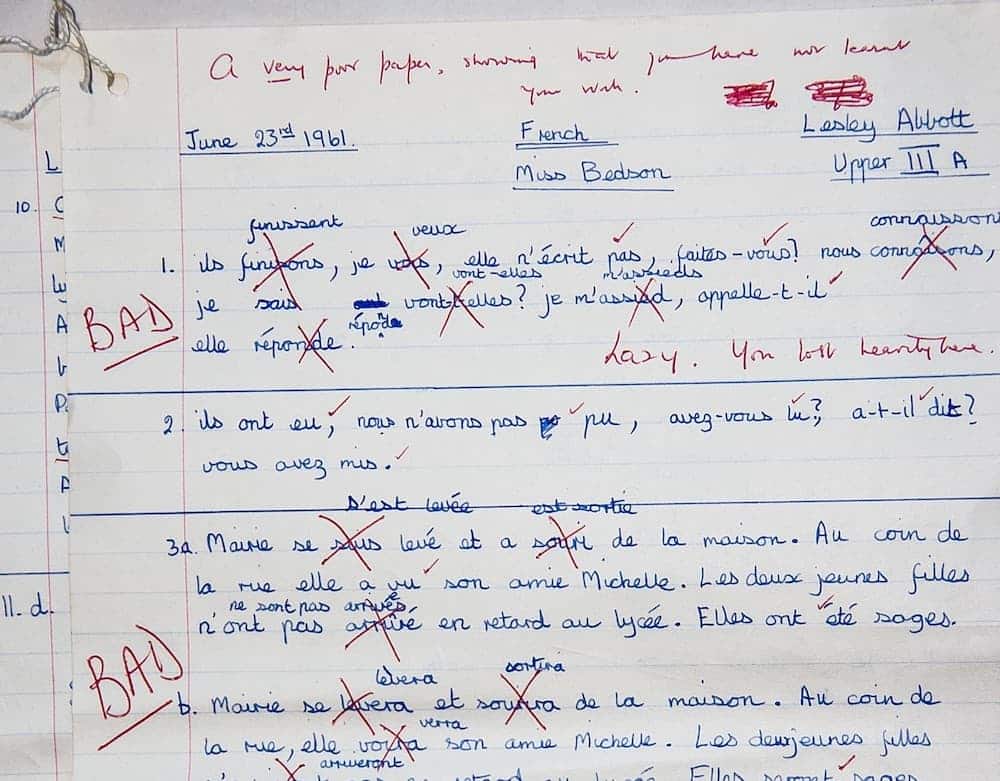 A very poor paper, showing that you have not learnt
your work.
June 23rd 1961.
French
Lesley Abbott
Miss Bedson
Upper III A
L
10. C
M
A
P.
11. d.
finissent veux connaisson
1. ils finisons, je vois, elle n'écrit pas, faites-vous? nous connaisons,
vont-elles m'assieds
je sais vont-elles? je m'assied, appelle-t-il
BAD
réponde
elle réponde.
Lazy. You lost heavily here.
2. ils ont eu, nous n'avons pas pu, avez-vous lu? a-t-il dit?
vous avez mis.
s'est levée est sortie
3a. Mairie se levé et a souri de la maison. Au coin de
la rue elle a vu son amie Michelle. Les deux jeunes filles
ne sont pas arrivés
n'ont pas arrivé en retard au lycée. Elles ont été sages.
BAD
lèvera sortira
b. Mairie se levera et de la maison. Au coin de
verra
la rue, elle son amie Michelle. Les deux jeunes filles
arriveront
Elles seront sages